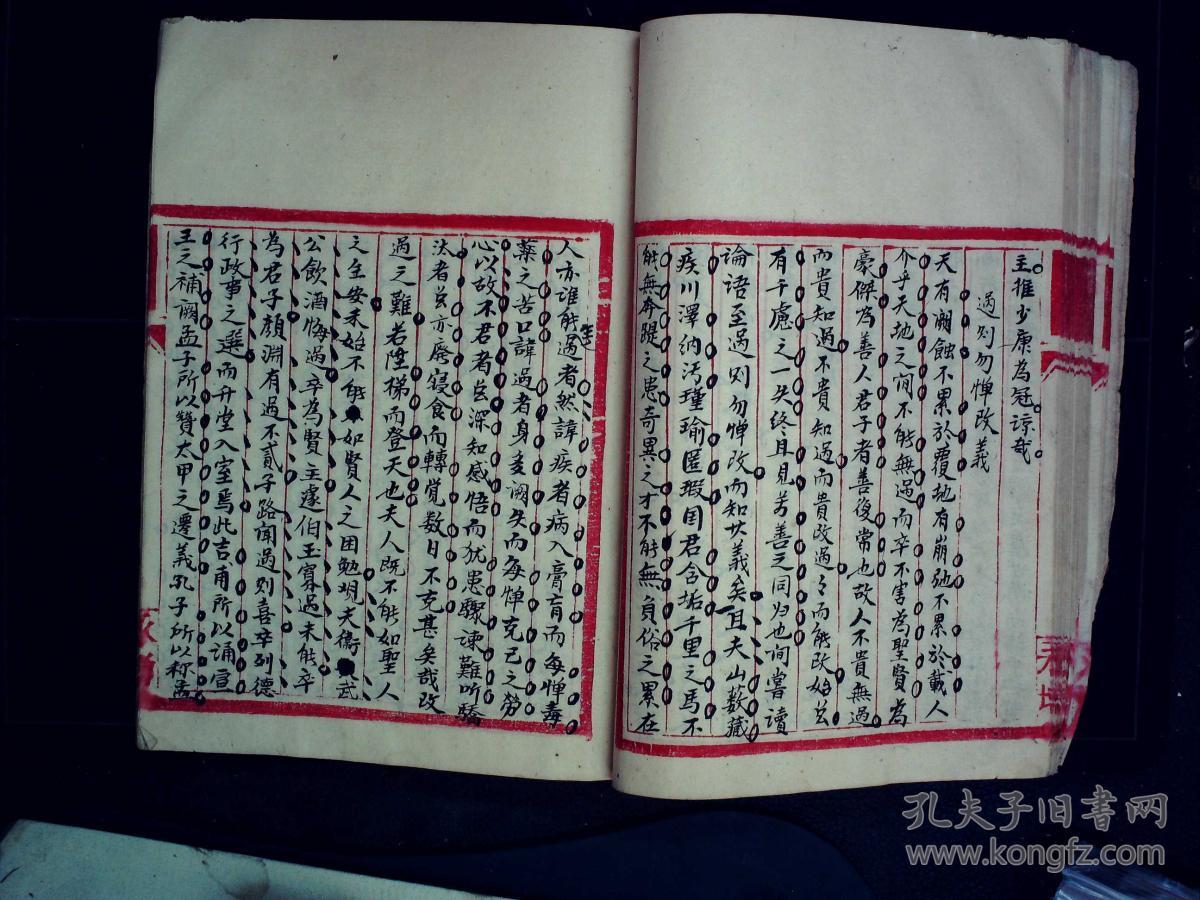 主推少康為冠諒哉
過則勿憚改義
天有闕蝕不累於覆地有崩弛不累於載人
介乎天地之間不能無過而卒不害為聖賢為
豪傑為善人君子者善後常也故人不貴無過
而貴知過不貴知過而貴改過々而能改始玆
有千慮之一失終且見芳善之同归也间嘗讀
論語至過則勿憚改而知其義矣且夫山藪藏
疾川澤納汚瑾瑜匿瑕国君含垢千里之馬不
能無奔踶之患奇異之才不能無負俗之累在
人亦誰能過者然諱疾者病入膏肓而每憚毒
藥之苦口諱過者身多闕失而每憚克己之勞
心以故不君者玆深知感悟而犹患驟諫難听驕
汰者玆亦廢寝食而轉覚数日不克甚矣哉改
過之難若陞梯而登天也夫人既不能如聖人
之生安未始不能如賢人之困勉覌夫衛武
公飲酒悔過卒為賢主遽伯玉寡過未能卒
為君子顏淵有過不貳子路闻過則喜卒列德
行政事之選而升堂入室焉此吉甫所以诵宣
王之補闕孟子所以贊太甲之遷義孔子所以称孟
孔夫子旧书网
www.kongfz.com